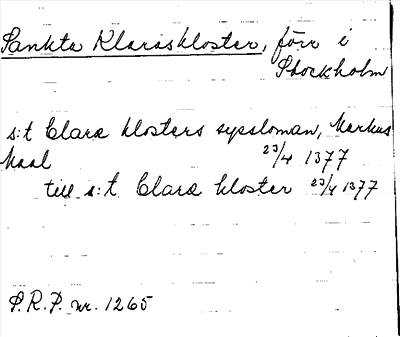 Sankta Klaraskloster, förr i
Stockholm
s:t Clara klosters syssloman, Markus
Maal 23/4 1377
till s:t Clara kloster 23/4 1377
S.R.P. nr. 1265